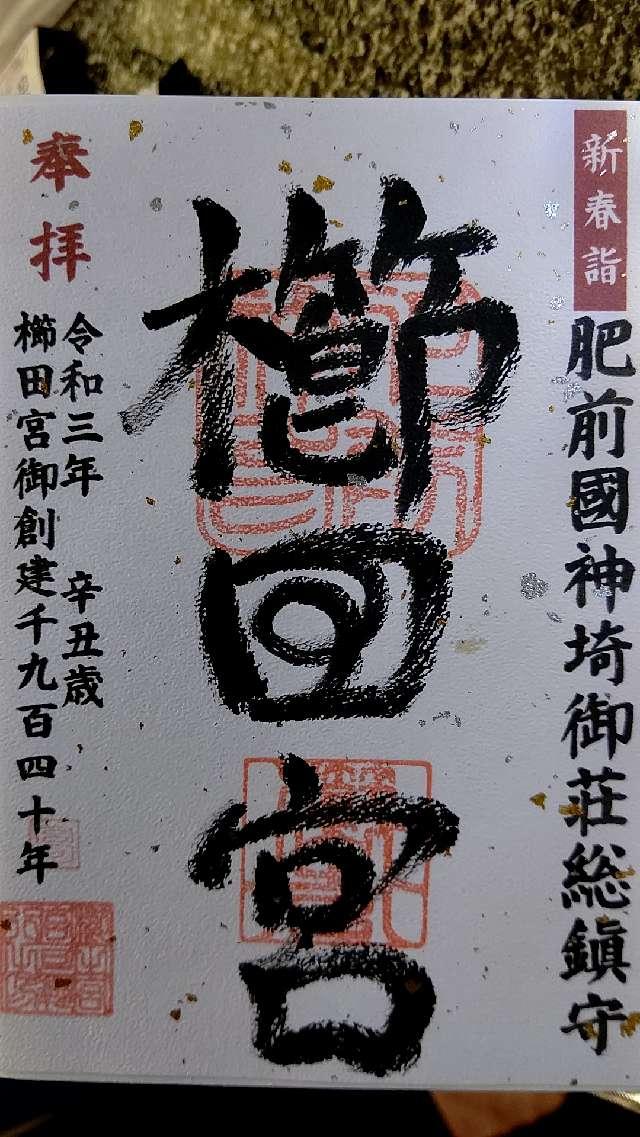 新春詣
肥前國神埼御荘総鎮守
櫛田宮
奉拝
令和三年 辛丑歳
櫛田宮御創建千九百四十年